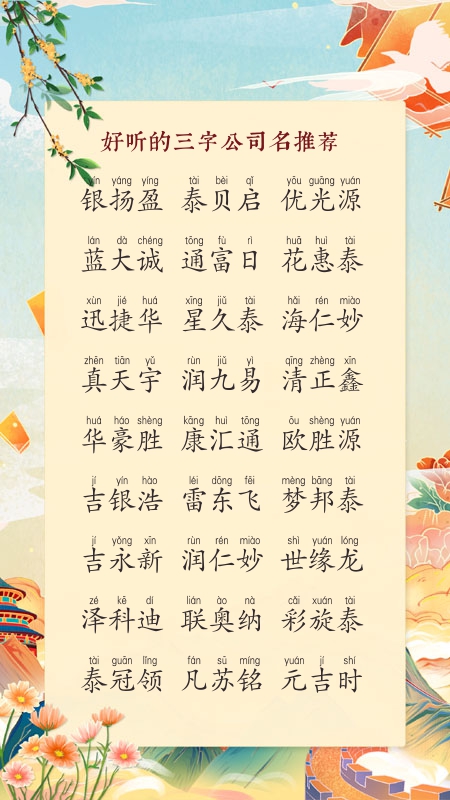 好听的三字公司名推荐
yín yáng yíng tài bèi qǐ yōu guāng yuán
银扬盈 泰贝启 优光源
lán dà chéng tōng fù rì huā huì tài
蓝大诚 通富日 花惠泰
xùn jié huá xīng jiǔ tài hǎi rén miào
迅捷华 星久泰 海仁妙
zhēn tiān yǔ rùn jiǔ yì qīng zhèng xīn
真天宇 润九易 清正鑫
huá háo shèng kāng huì tōng ōu shèng yuán
华豪胜 康汇通 欧胜源
jí yín hào léi dōng fēi mèng bāng tài
吉银浩 雷东飞 梦邦泰
jí yǒng xīn rùn rén miào shì yuán lóng
吉永新 润仁妙 世缘龙
zé kē dí lián ào nà cǎi xuán tài
泽科迪 联奥纳 彩旋泰
tài guān lǐng fán sū míng yuán jí shí
泰冠领 凡苏铭 元吉时